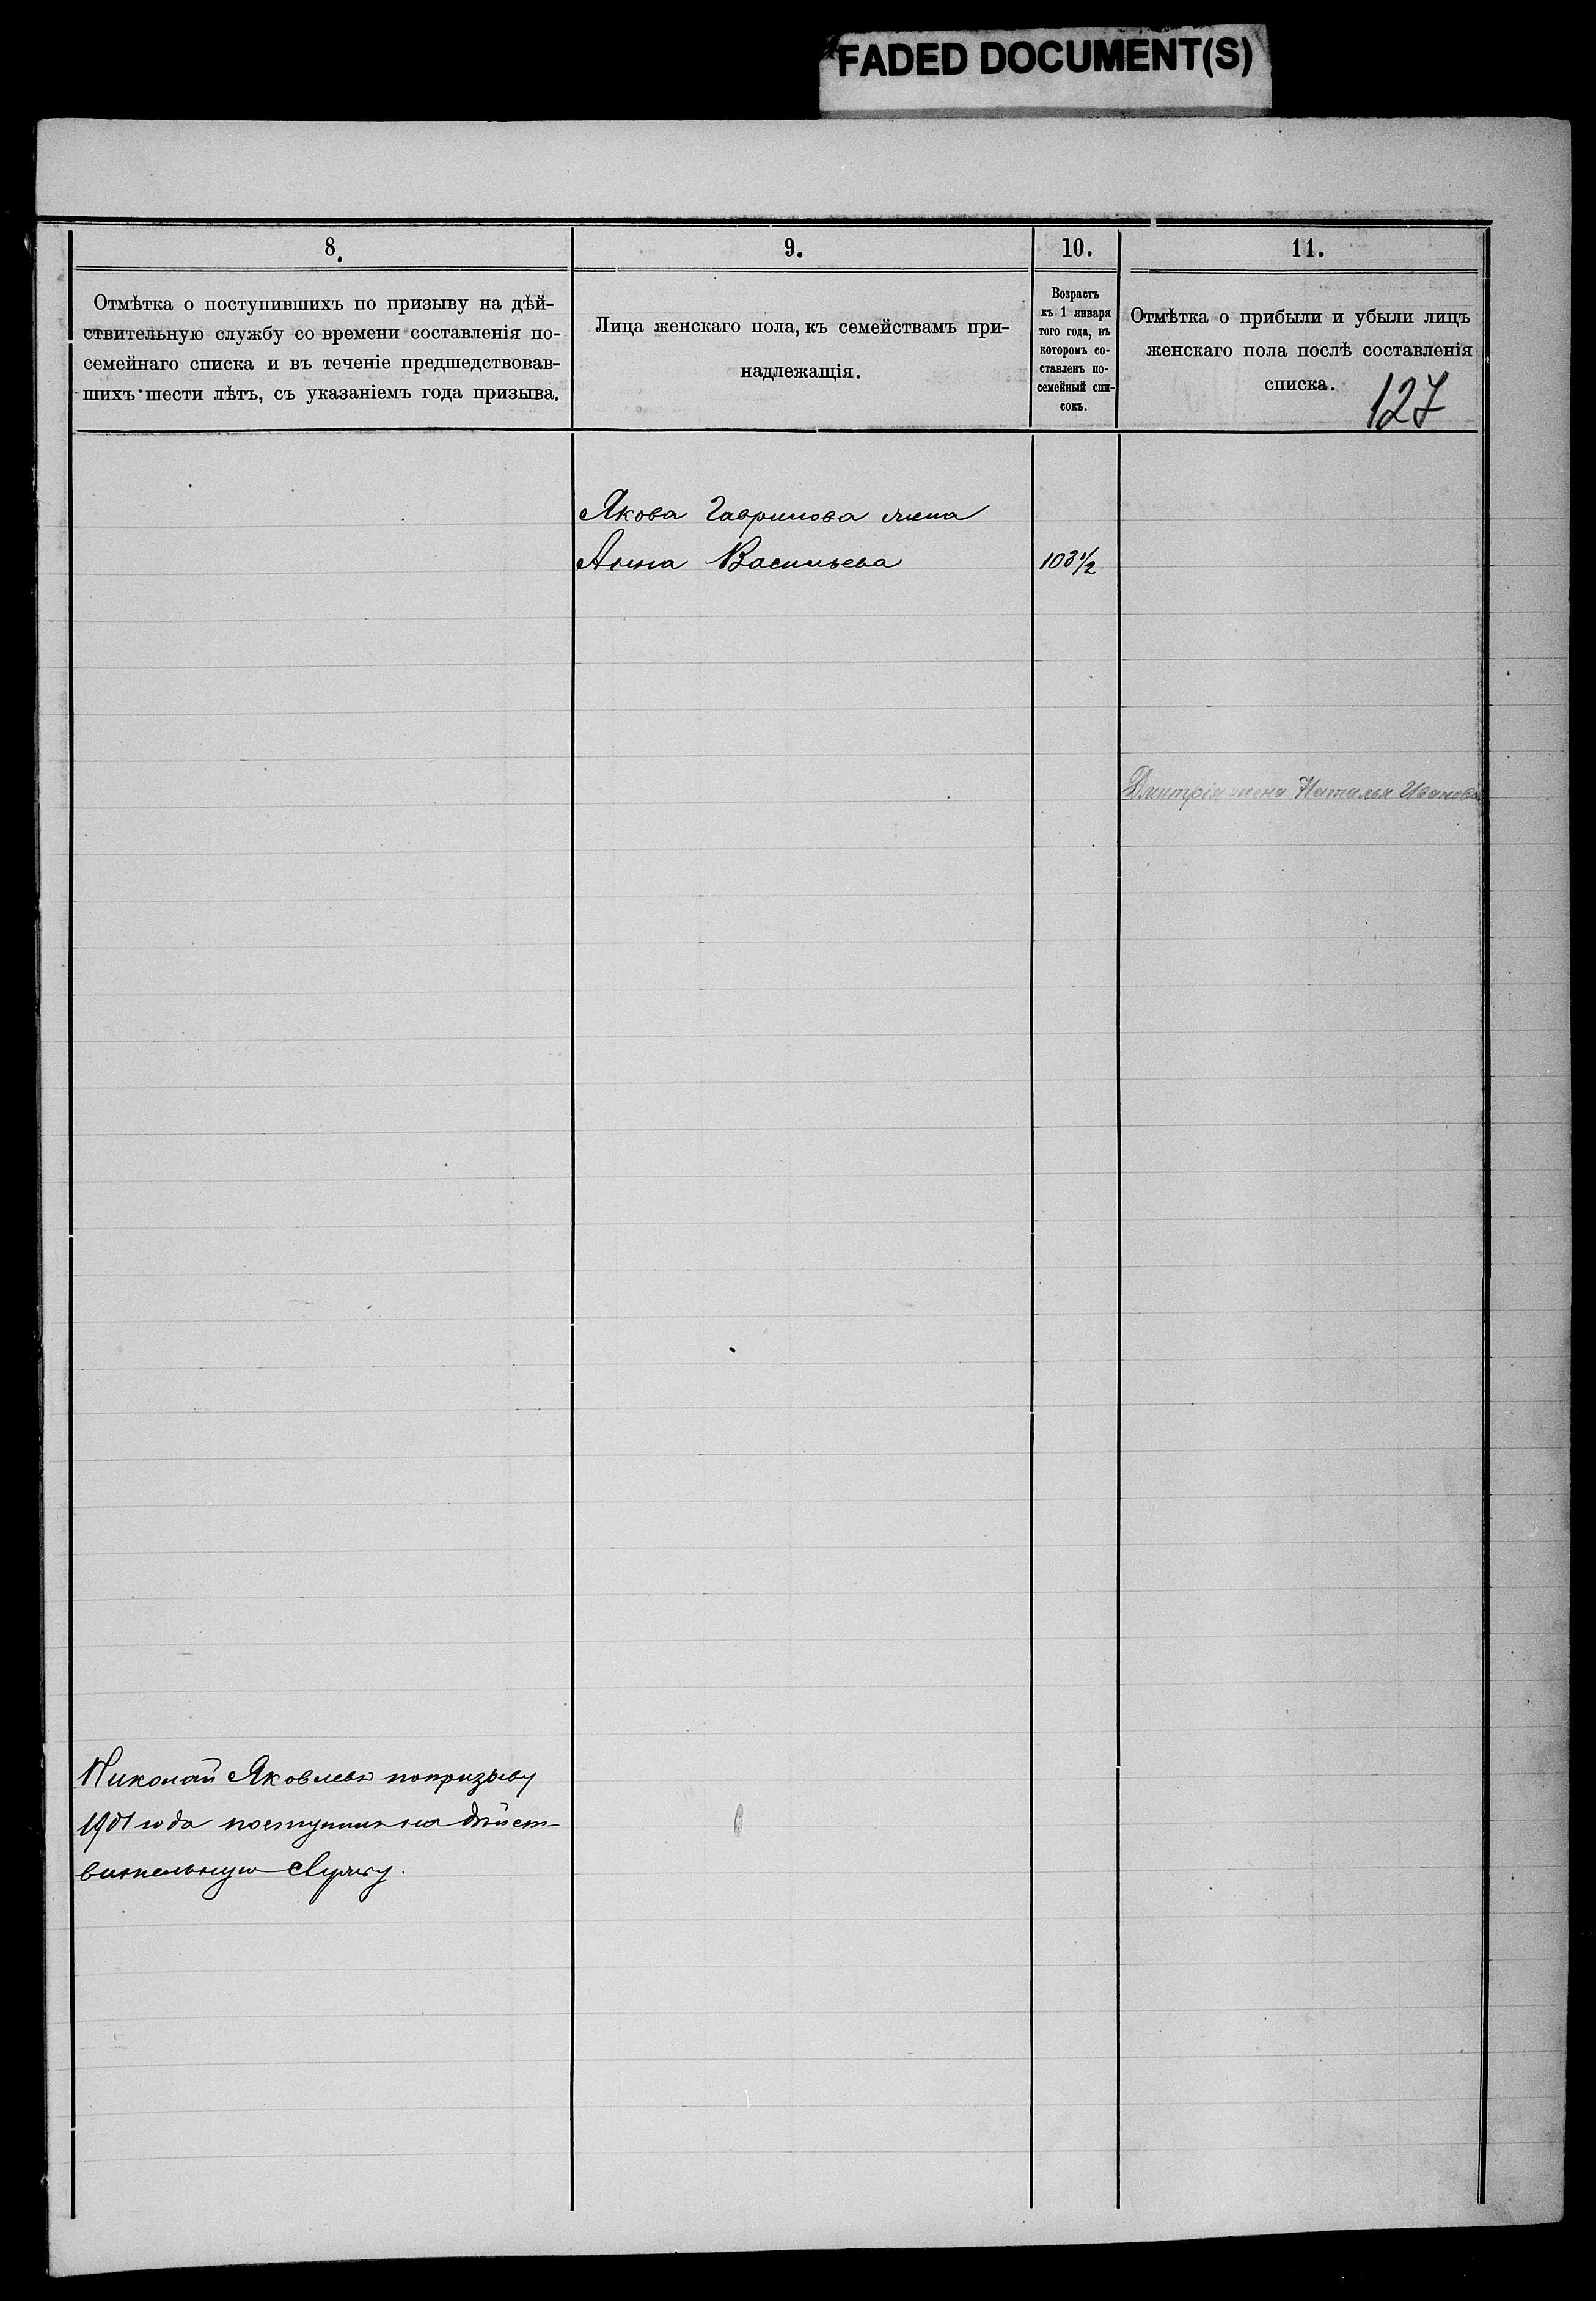 FADED DOCUMENT(S)
8.
Отмѣтка о поступившихъ по призыву на дѣй-
ствительную службу со времени составленія по-
семейнаго списка и въ теченіе предшедствовав-
шихъ шести лѣтъ, съ указаніемъ года призыва.
9.
Лица женскаго пола, къ семействамъ при-
надлежащія.
10.
Возрастъ
къ 1 января
того года, въ
которомъ со-
ставленъ по-
семейный спи-
сокъ.
11.
Отмѣтка о прибыли и убыли лицъ
женскаго пола послѣ составленія
списка.
127
Якова Гаврилова жена
Анна Васильева 103 1/2
Дмитрія жена Наталья Иванова
Николай Яковлевъ попризыву
1901 года поступилъ на дѣйст-
вительную службу.